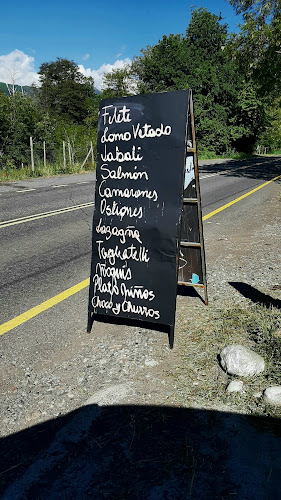 Filete
Lomo Vetado
Jabalí
Salmón
Camarones
Ostiones
Lazagna
Tagliatelli
Ñoquis
Plato Niños
Choco y Churros